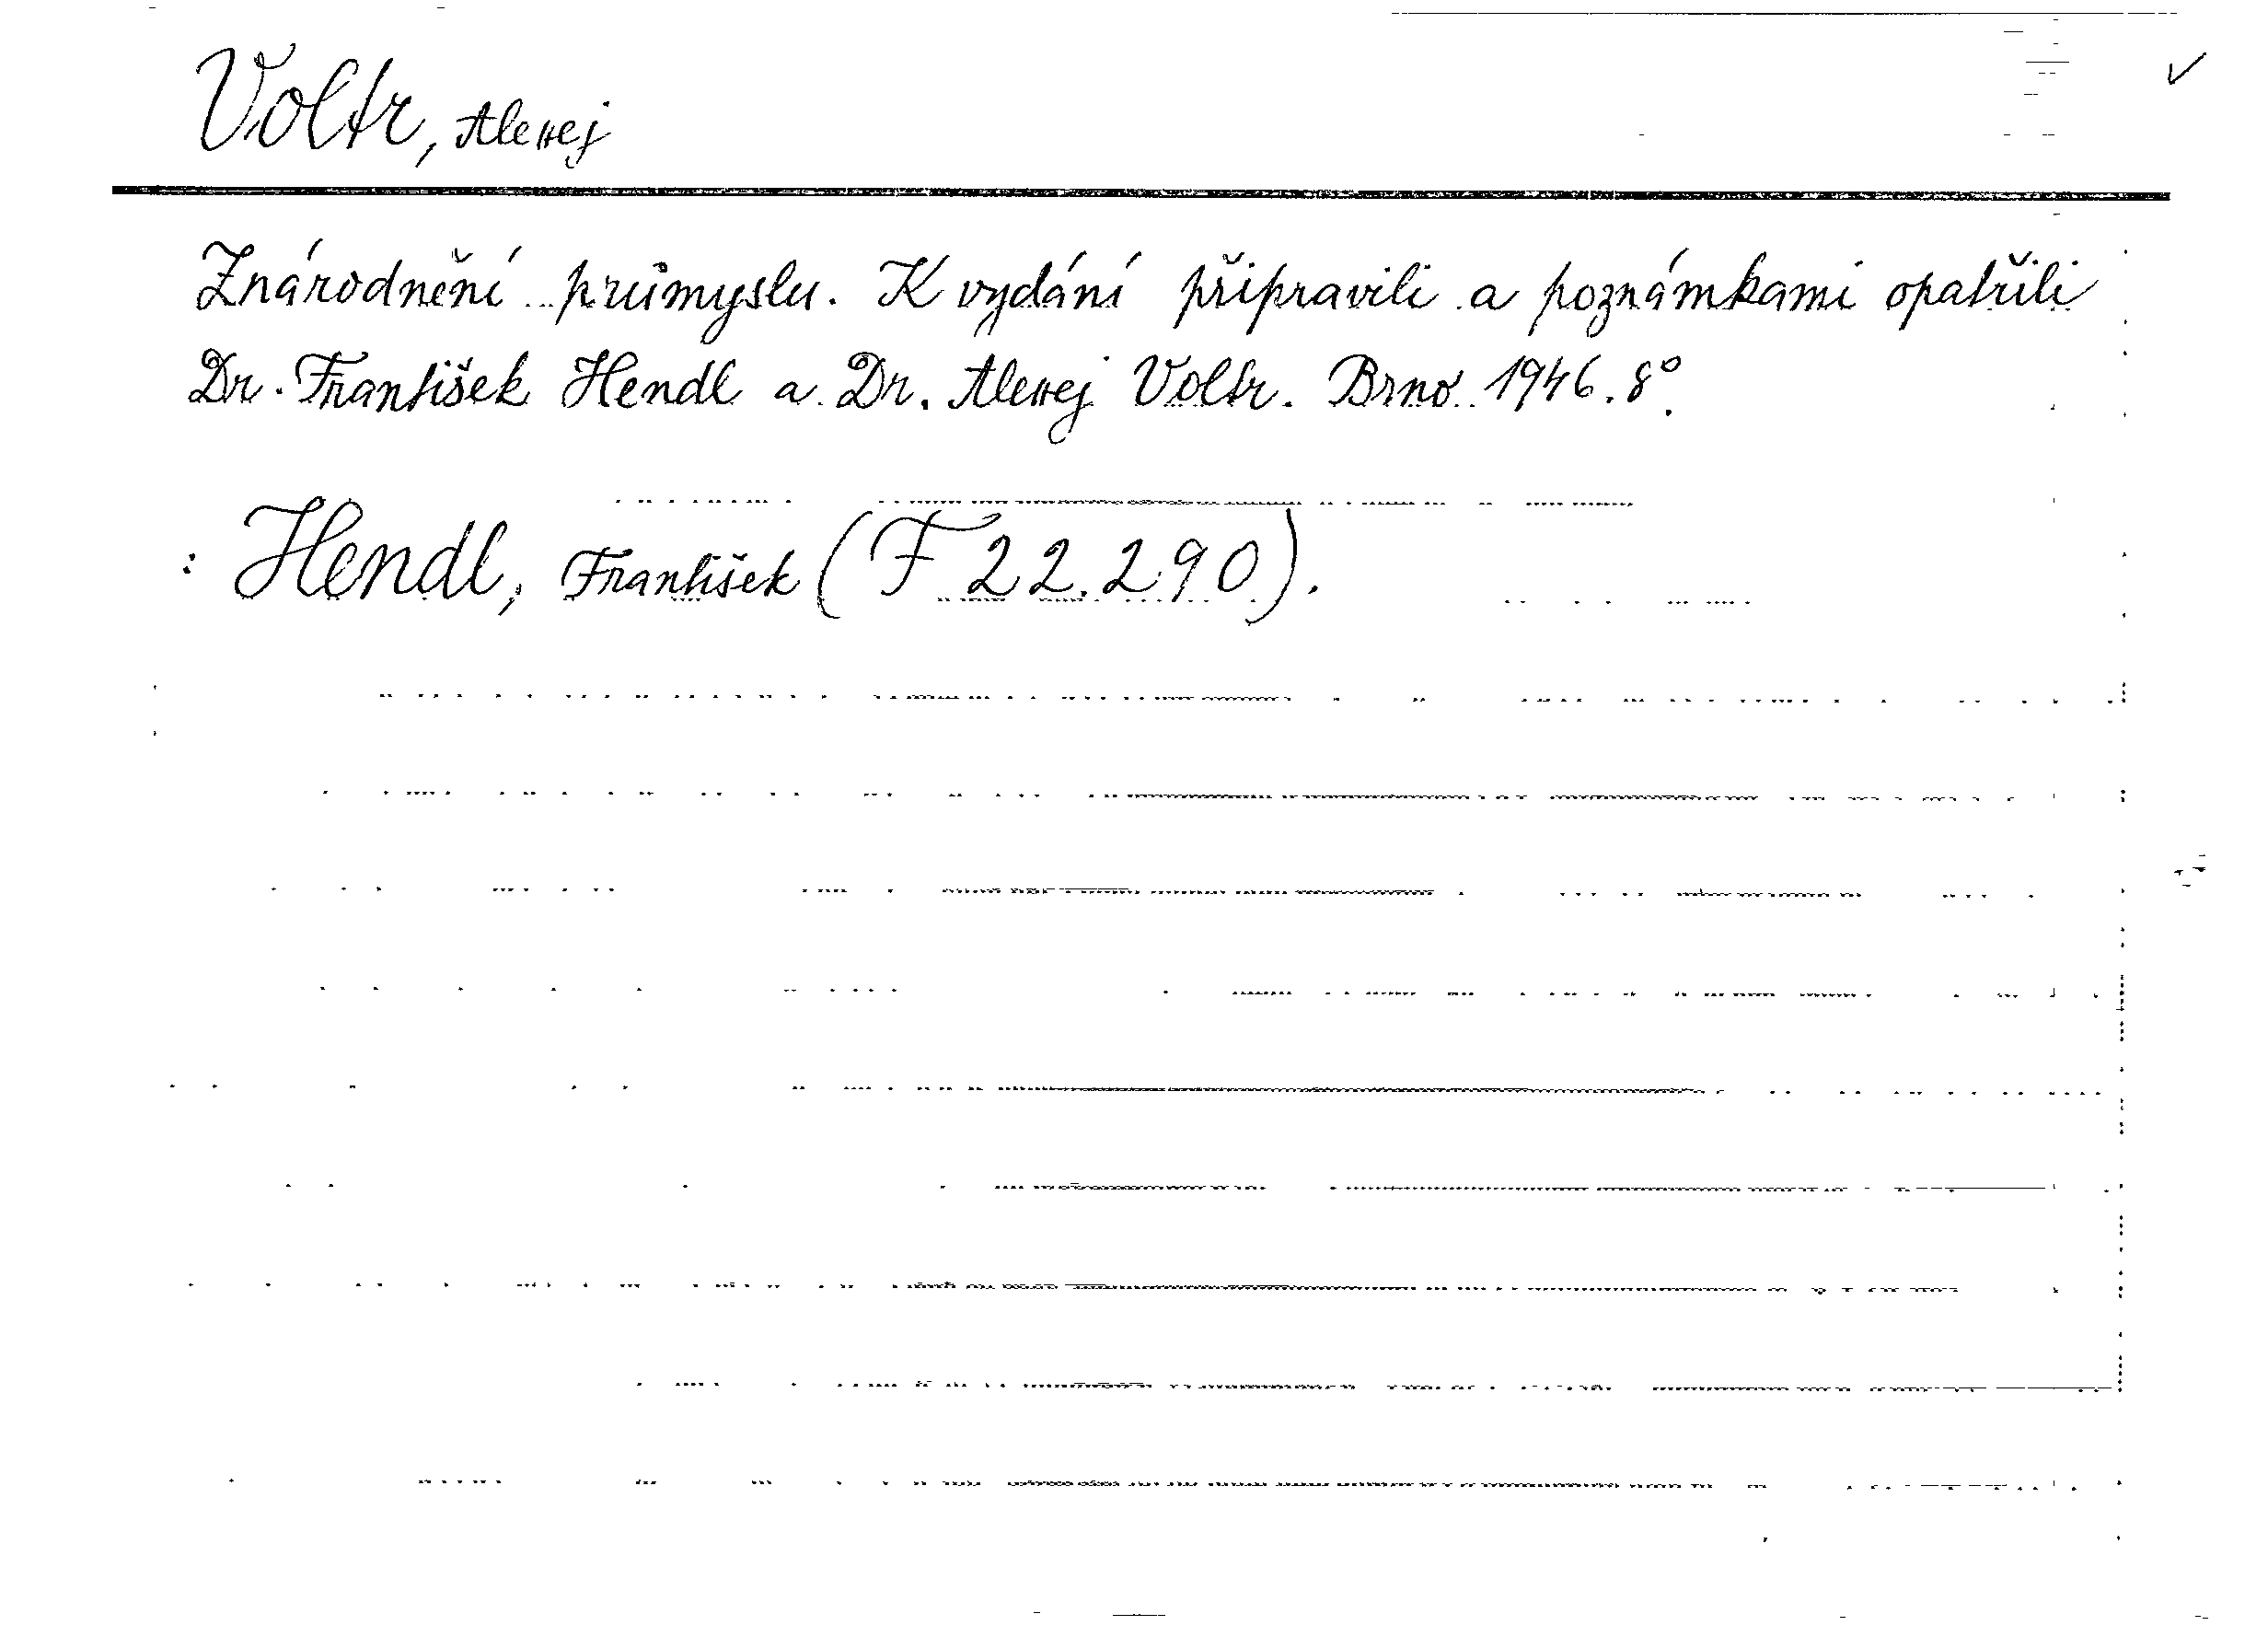 Voltr, Alexej
Znárodnění průmyslu. K vydání připravili a poznámkami opatřili
Dr. František Hendl a Dr. Alexej Voltr. Brno 1946. 8°.
: Hendl, František (F 22.290).